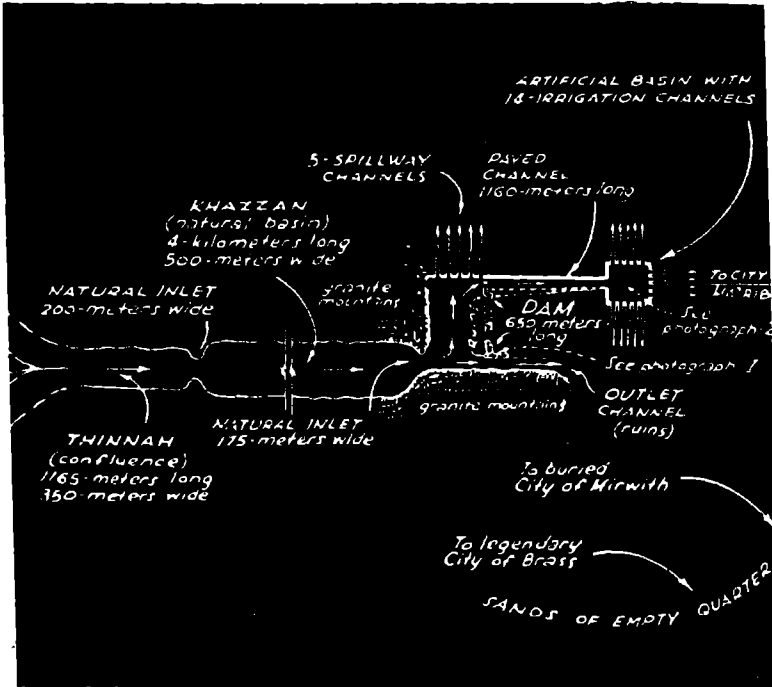 ARTIFICIAL BASIN WITH
14-IRRIGATION CHANNELS
5-SPILLWAY
CHANNELS
PAVED
CHANNEL
1160-meters long
KHAZZAN
(natural basin)
4-kilometers long
500-meters wide
NATURAL INLET
200-meters wide
granite
mountains
DAM
650 meters
long
TO CITY
See
photograph-2
See photograph-1
OUTLET
CHANNEL
(ruins)
granite mountains
NATURAL INLET
175-meters wide
THINNAH
(confluence)
1165-meters long
350-meters wide
To buried
City of Mirwith
To legendary
City of Brass
SANDS OF EMPTY QUARTER